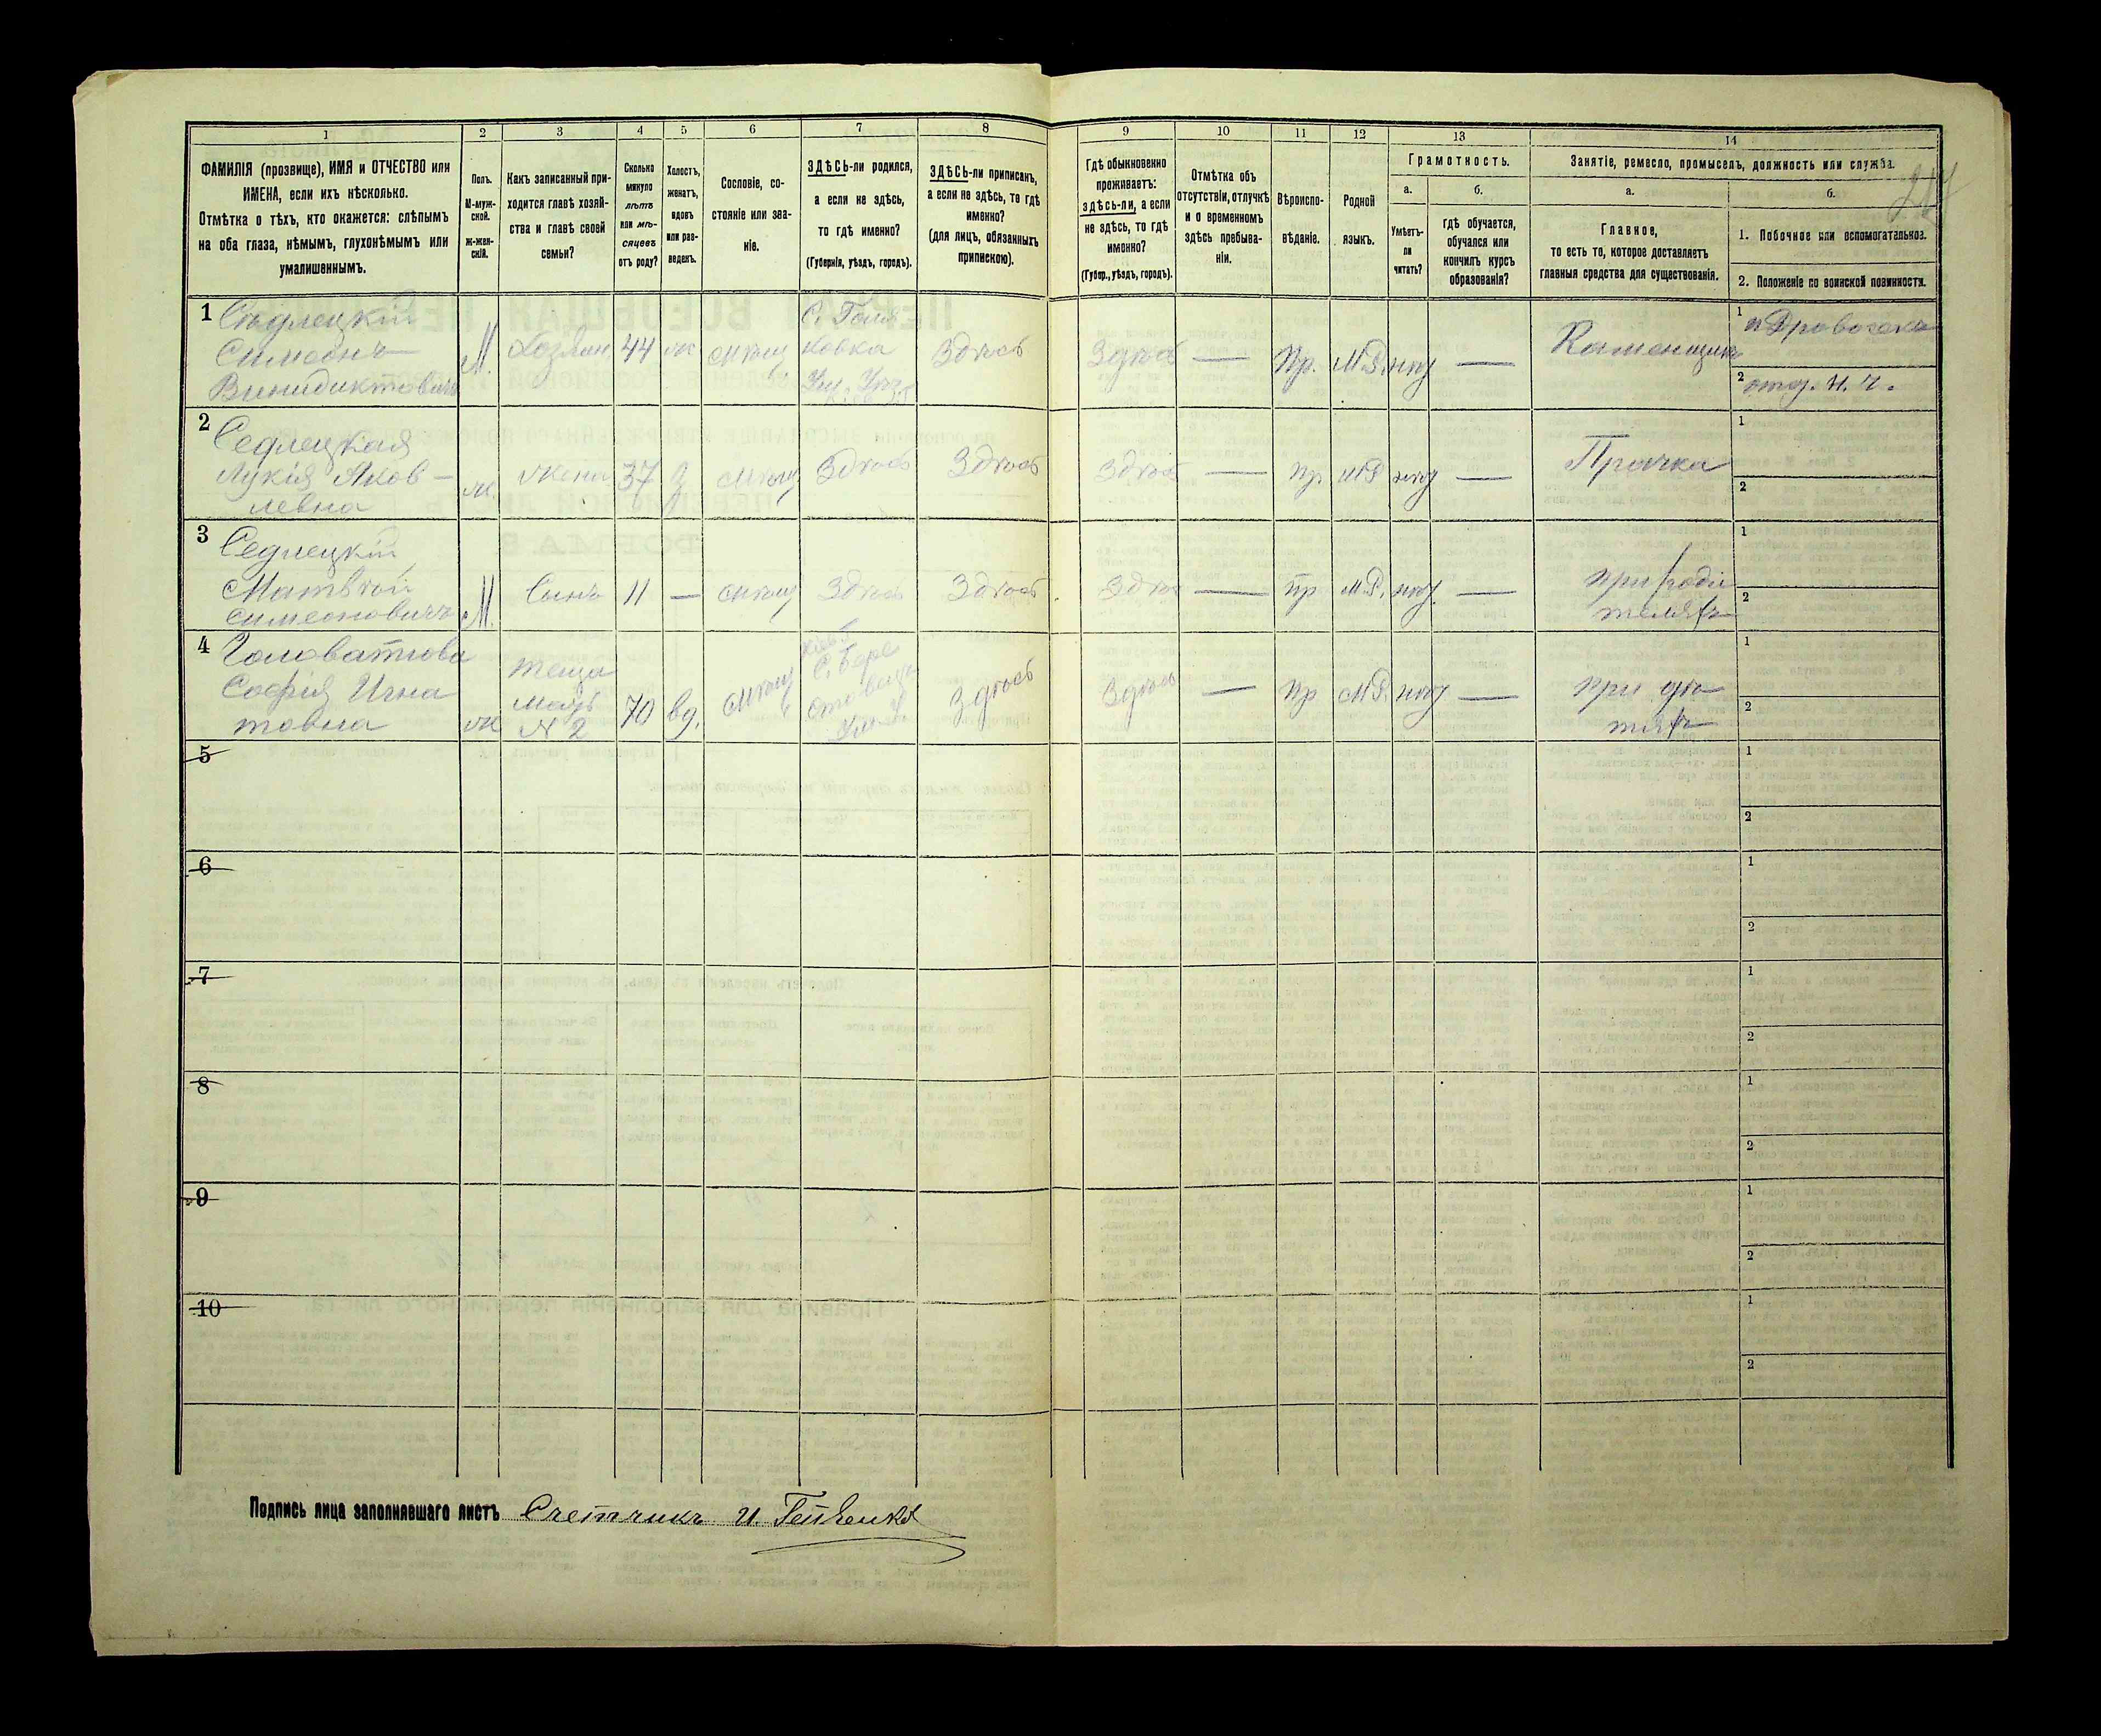 1
2
3
4
5
6
7
8
9
10
11
12
13
14
ФАМИЛІЯ (прозвище), ИМЯ и ОТЧЕСТВО или
ИМЕНА, если ихъ нѣсколько.
Отмѣтка о тѣхъ, кто окажется: слѣпымъ
на оба глаза, нѣмымъ, глухонѣмымъ или
умалишеннымъ.
Полъ.
М-муж-
ской.
ж-жен-
скій.
Какъ записанный при-
ходится главѣ хозяй-
ства и главѣ своей
семьи?
Сколько
минуло
лѣтъ
или мѣ-
сяцевъ
отъ роду?
Холостъ,
женатъ,
вдовъ
или раз-
веденъ.
Сословіе, со-
стояніе или зва-
ніе.
ЗДѢСЬ-ли родился,
а если не здѣсь,
то гдѣ именно?
(Губернія, уѣздъ, городъ).
ЗДѢСЬ-ли приписанъ,
а если не здѣсь, то гдѣ
именно?
(для лицъ, обязанныхъ
припискою).
Гдѣ обыкновенно
проживаетъ:
здѣсь-ли, а если
не здѣсь, то гдѣ
именно?
(Губер., уѣздъ, городъ).
Отмѣтка объ
отсутствіи, отлучкѣ
и о временномъ
здѣсь пребыва-
ніи.
Вѣроиспо-
вѣданіе.
Родной
языкъ.
Грамотность.
а.
Умѣетъ-
ли
читать?
б.
гдѣ обучается,
обучался или
кончилъ курсъ
образованія?
Занятіе, ремесло, промыселъ, должность или служба.
а.
Главное,
то есть то, которое доставляетъ
главныя средства для существованія.
б.
1. Побочное или вспомогательное.
2. Положеніе по воинской повинности.
1
Сѣдлецкій
Симеонъ
Венидиктовичъ
М.
Хозяин
44
ж
мѣщ
здѣсь
здѣсь
—
Пр.
М.Р.
нѣт
—
Каменщикъ
1
Дровосекъ
2
отд. н. ч.
2
Седлецкая
Лукія Яков-
левна
ж.
жена
37
з
мѣщ
здѣсь
здѣсь
здѣсь
—
пр
М.Р.
нѣт
—
Прачка
1
2
3
Седлецкій
Матвѣй
Симеоновичъ
М.
Сынъ
11
—
мѣщ
здѣсь
здѣсь
здѣсь
—
пр
М.Р.
нѣт
—
при родите
теляхъ
1
2
4
Головатюва
Софія Игна
товна
ж
теща
мать
№ 2
70
вд.
мѣщ
здѣсь
здѣсь
—
Пр
М.Р.
нѣт
—
при дѣ
тяхъ
1
2
5
1
2
6
1
2
7
1
2
8
1
2
9
1
2
10
1
2
Подпись лица заполнявшаго листъ Счетчикъ И.